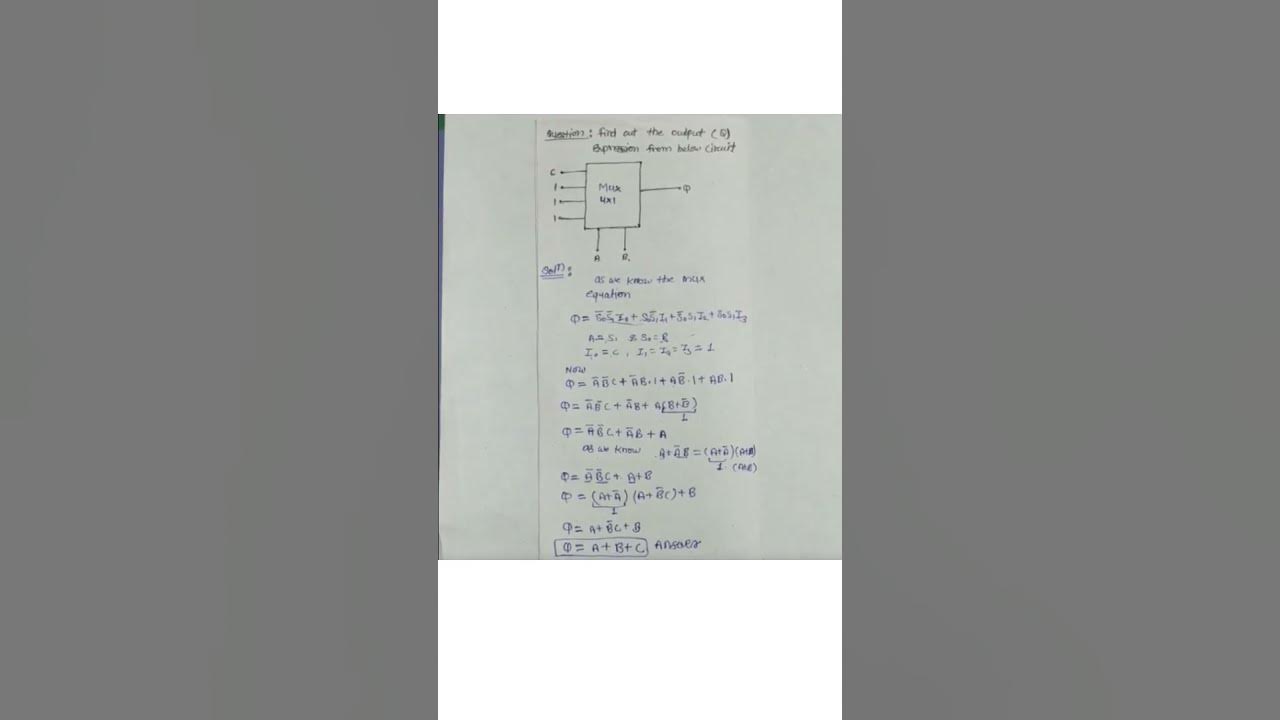 Question: find out the output (Q)
Expression from below circuit
C
1
1
1
Mux
4x1
Q
A
B
Solⁿ):
as we know the mux
equation
Q = S̅₀S̅₁I₀ + S₀S̅₁I₁ + S̅₀S₁I₂ + S₀S₁I₃
A = S₁ & S₀ = B
I₀ = C, I₁ = I₂ = I₃ = 1
NOW
Q = A̅B̅C + A̅B·1 + AB̅·1 + AB·1
Q = A̅B̅C + A̅B + A(B+B̅)
1
Q = A̅B̅C + A̅B + A
as we know A+A̅B = (A+A̅)(A+B)
1. (A+B)
Q = A̅B̅C + A+B
Q = (A+A̅) (A+B̅C) + B
1
Q = A+B̅C+B
Q = A+B+C Answer